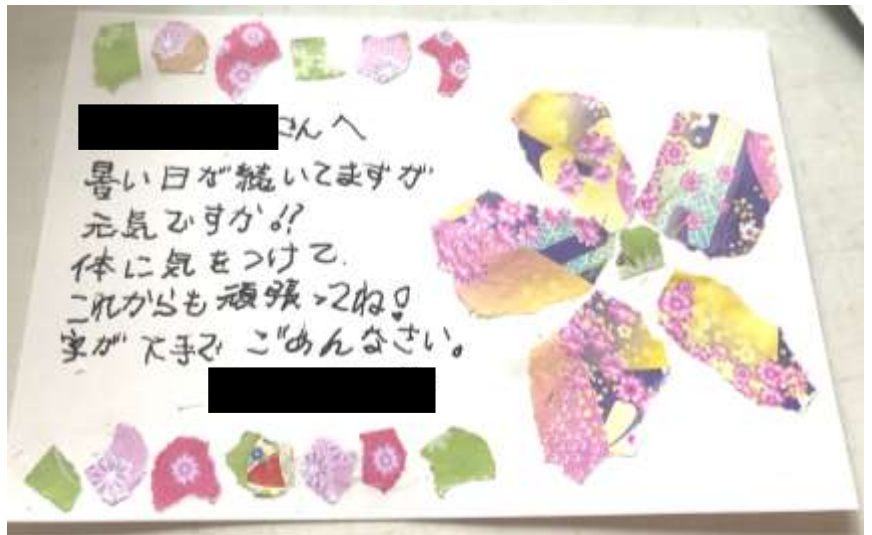 さんへ
暑い日が続いてますが
元気ですか!?
体に気をつけて.
これからも頑張ってね!
字が下手でごめんなさい。